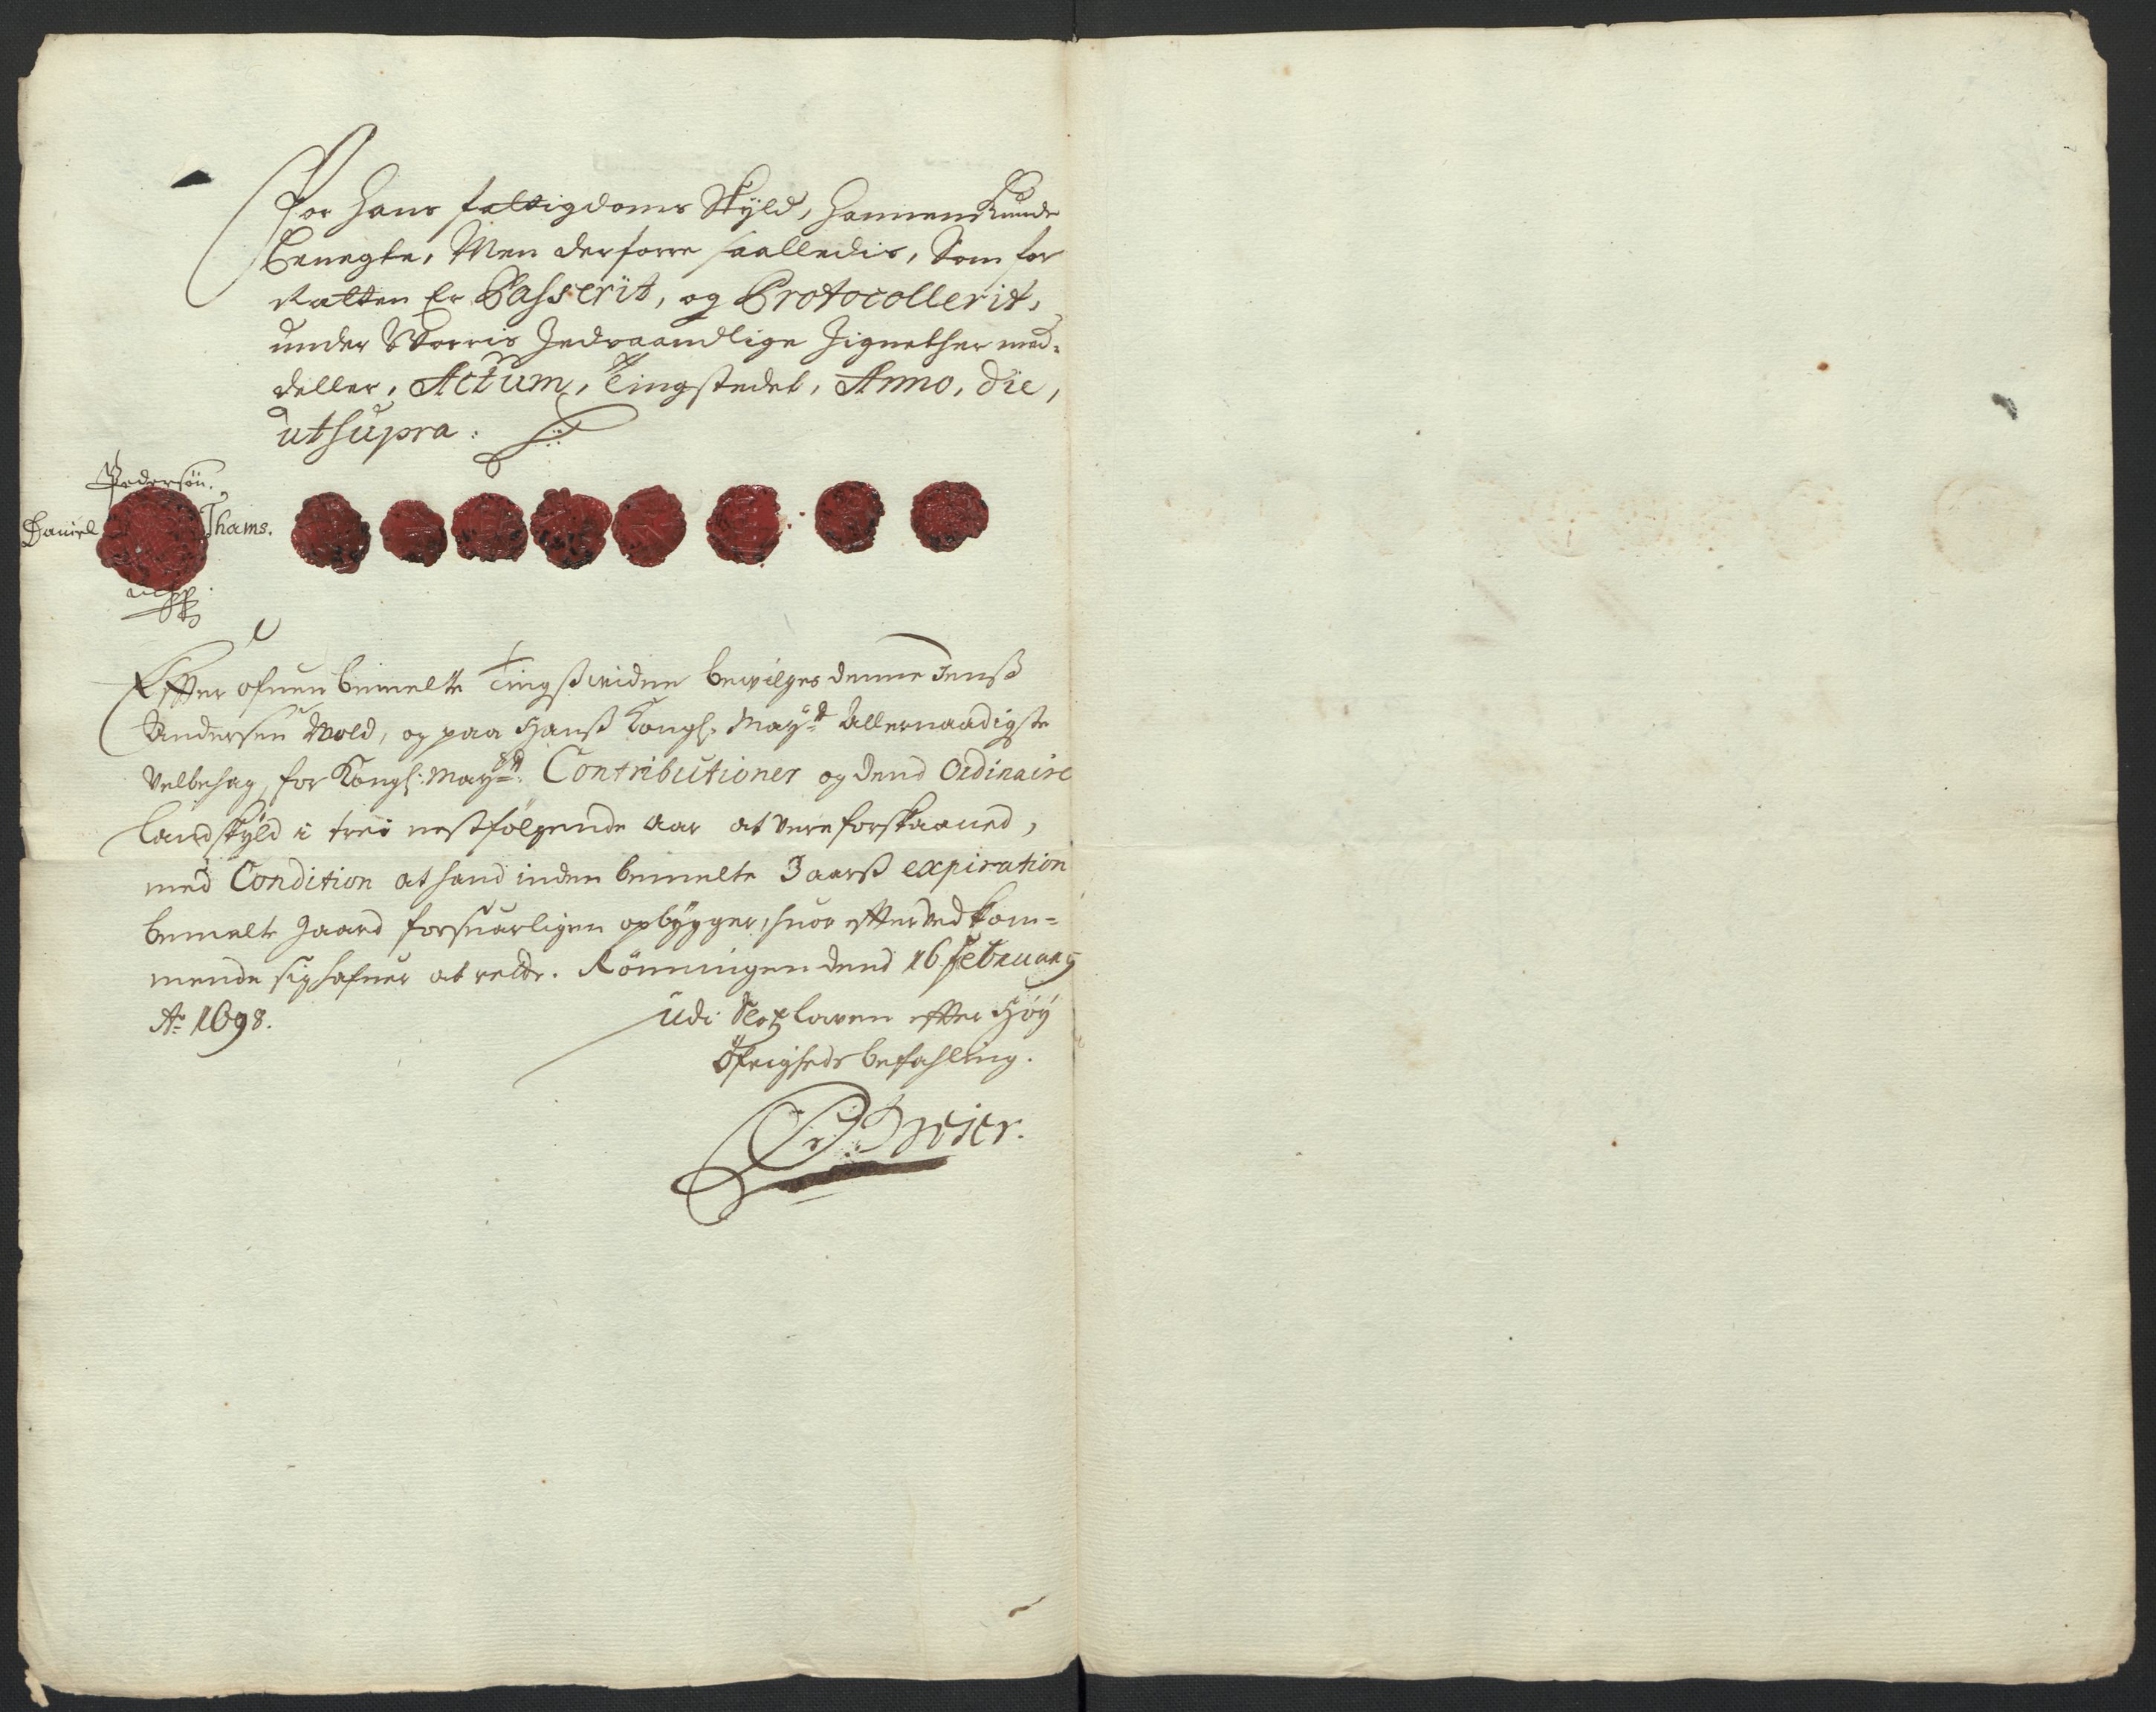 For hans fattigdoms Skyld, hannem Kunde
Benegte, Men derforre saalledis, Som for
Ratten Er Passerit, og Protocollerit,
under Worris Zedvaandlige Zignether med-
deller, Actum, Tingstedet, Anno, die,
ut supra:
Pedersøn.
Daniel Thams.
Effter ofuen bemelte Tingsswidne bewilges denne Jenss
Andersen Wold, og paa Hanss Kongl. Mayt Allernaadigste
Velbehag, for Kongl: Mayts: Contributioner og dend Ordinaire
Landskyld i trei nestfølgende Aar at vere forskaaned,
med Condition at hand inden bemelte 3 aarss expiration
bemelte gaard forsuarligen opbygger, huor effter vedkom-
mende sig hafuer at rette. Rönningen dend 16 February
Ao 1698.
Udi Slotzlowen effter Høy
Øfrigheds befahling.